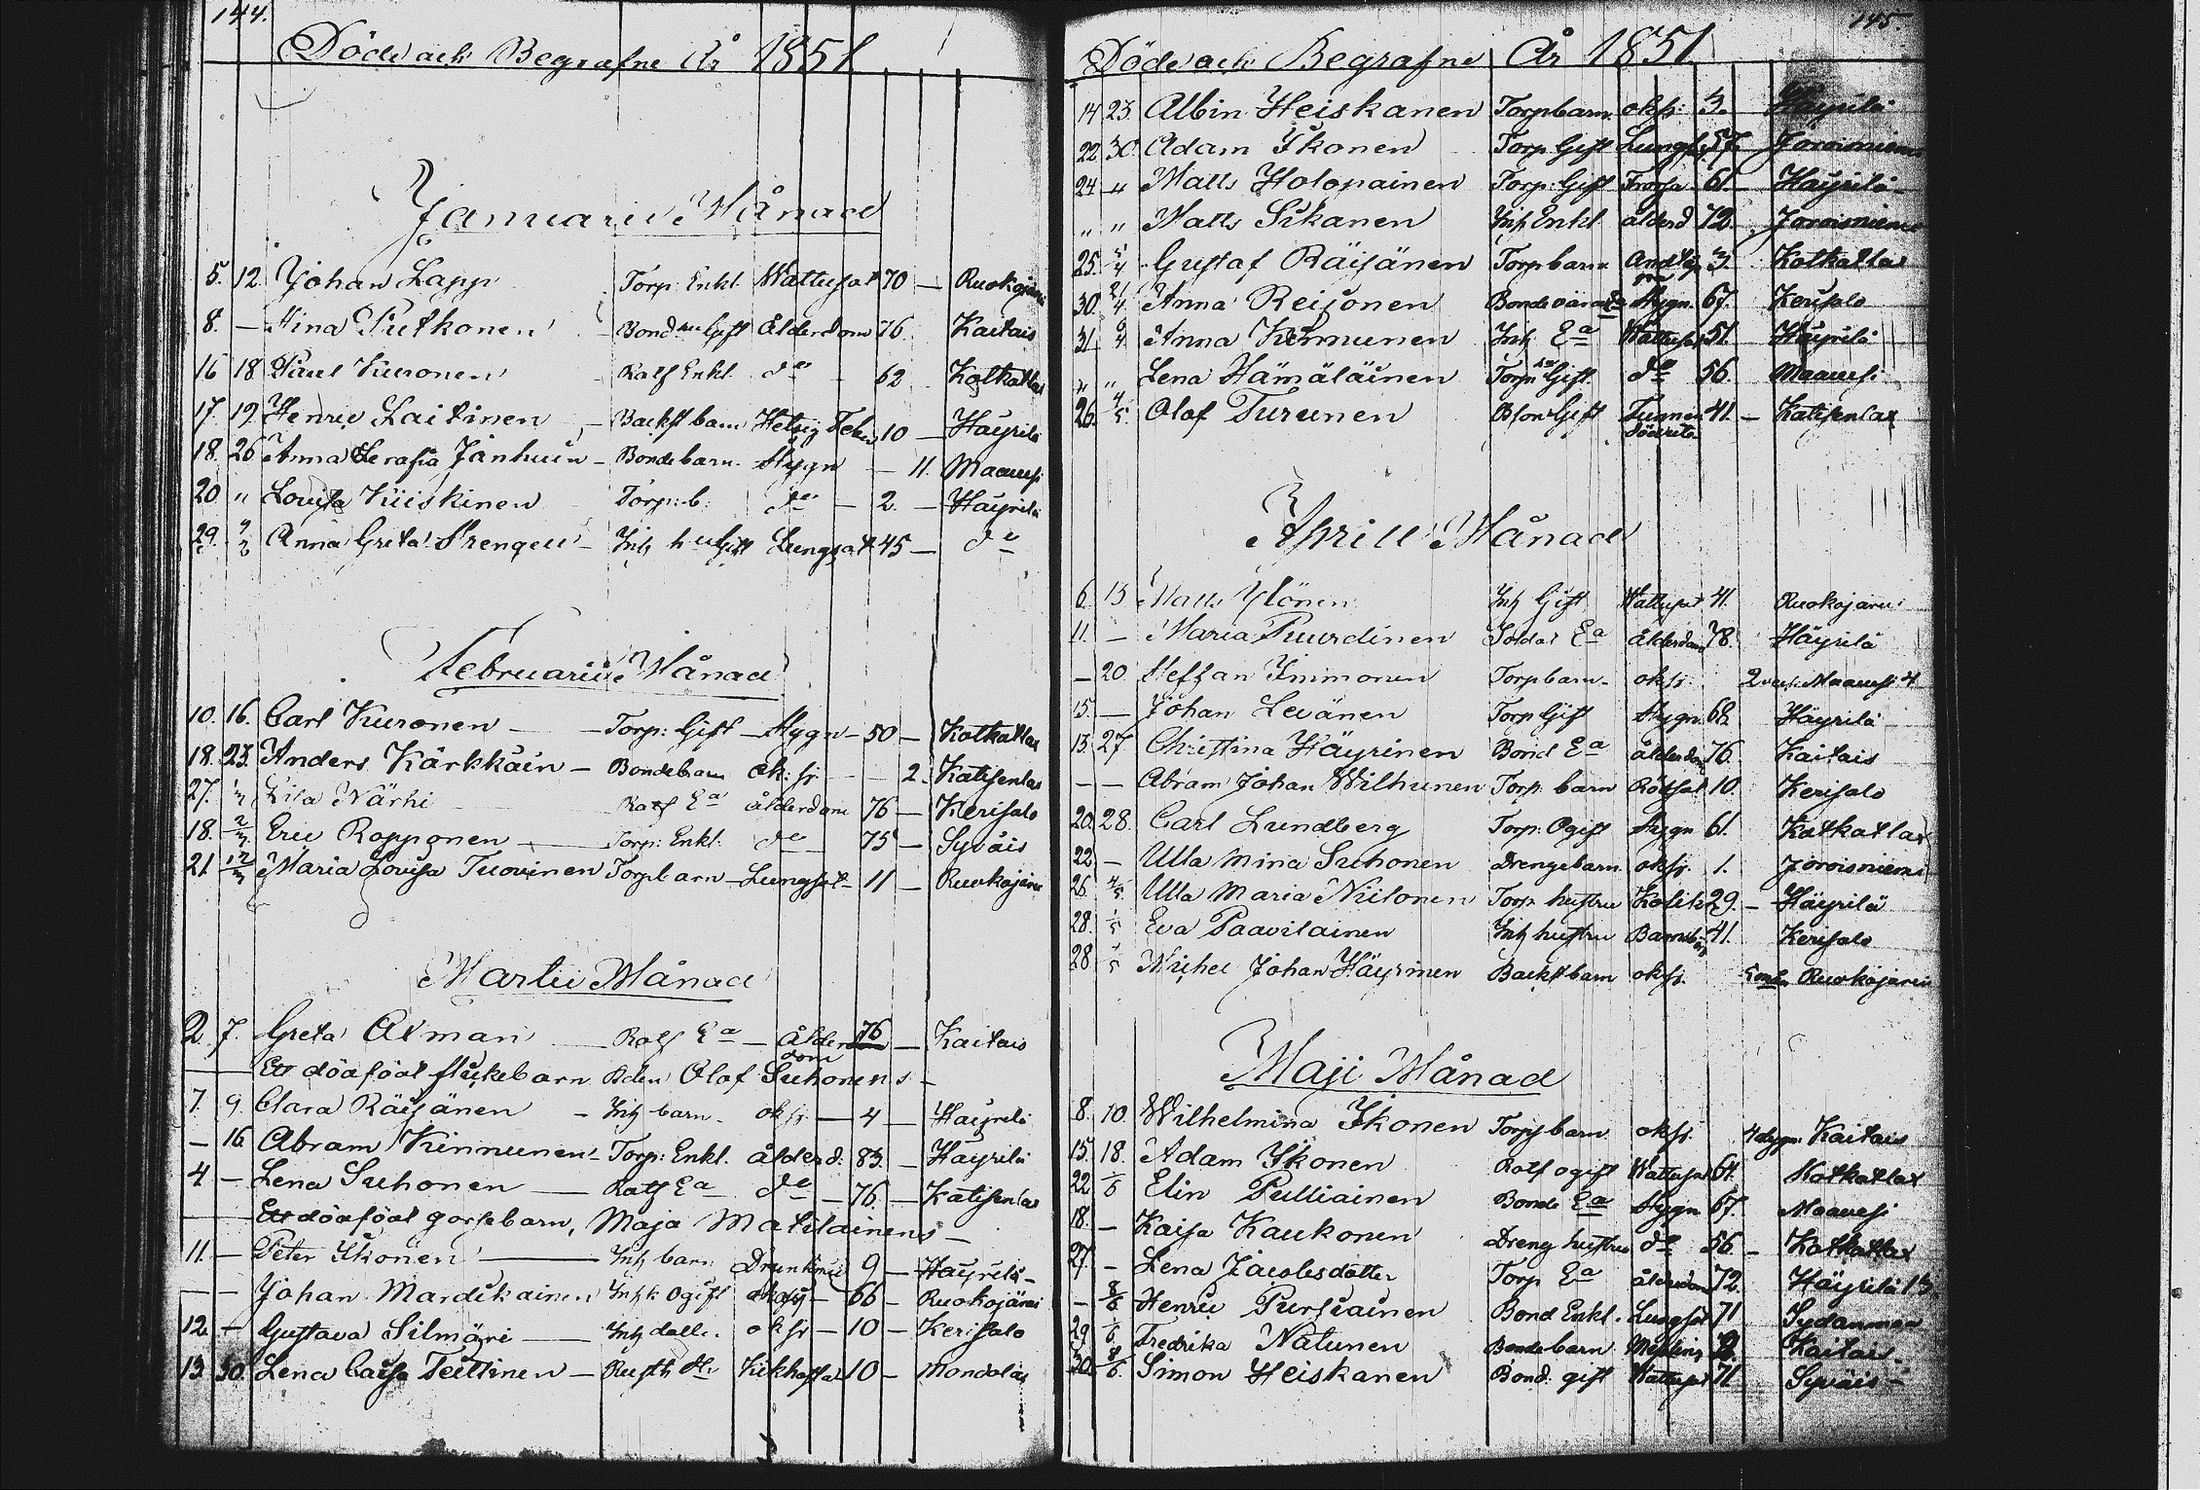 144.
Döde och Begrafne År 1851
Januarii Månad
5. 12. Johan Lapp Torp: Enkl. Wattusot 70 — Ruokojärvi
8. — Stina Putkonen Bond hu Gift Ålderdom 76. Kaitais
16 18 Paul Kuronen Rotf Enkl. do 62 Kotkatlax
17. 19. Henric Laitinen Backst barn Hetsig Feber 10 — Häyrilä
18. 26 Anna Serafia Jänhuin — Bondebarn. Stygn — 11. Maavesi
20 " Lovisa Kiiskinen Torp: b. do — 2. — Häyrilä
29. 2/2 Anna Greta Strengell — Inh hu Gift Lungsot 45 — do
Februarii Månad
10. 16. Carl Kuronen — Torp: Gift — Stygn — 50 — Kotkatlax
18. 23. Anders Kärkkäin — Bondebarn ok: sj — 2. Katisenlax
27. Lisa Närhi Rotf Ea ålderdom 76 — Kerisalo
18. 2/3 Eric Ropponen — Torp: Enkl. do 75 — Syväis
21. 12/3 Maria Lovisa Tuovinen Torpbarn — Lungsot — 11 — Ruokojärvi
Martii Månad
2. 7. Greta Axman Rotf Ea — Ålderdom 76 — Kaitais
— Ett dödfödt flickebarn Bden Olof Suhonens —
7. 9. Clara Räisänen — Inh barn. ok sj — 4 — Häyrilä
— 16 Abram Kinnunen — Torp: Enkl. ålderd. 83. — Häyrilä
4 — Lena Suhonen — Rotf Ea do — 76. — Katisenlax
— Ett dödfödt gossebarn, Maja Matilainens —
11. — Peter Ikonen — Inh barn Drunknad 9 — Häyrilä —
— — Johan Mardikainen Inh k Ogift — 66 — Ruokojärvi
12. — Gustava Silmäri — Inh dotter. ok sj — 10 — Kerisalo
13. 30. Lena Caisa Teittinen — Kikhosta 10 — Mondolax
145.
Döde och Begrafne År 1851
14 23. Albin Heiskanen Torpbarn ok sj: 3. Häyrilä
22 30. Adam Ikonen Torp. Gift Lungsot 57. Joroisniemi
24 — " Matts Holopainen Torp: Gift Frossa 61. — Häyrilä —
" " Matts Sikanen Inh Enkl. ålderd 72. Joroisniemi
25. Gustaf Räisänen Torpbarn 3. Kotkatlax
30. Anna Reijonen Stygn. 67. Kerisalo
31. Anna Kinnunen Inh Ea Wattusot 51. Häyrilä
" " Lena Hämäläinen Torp: Gift. do 56. Maavesi
26. 4/5. Olof Turunen Gift 41. — Katisenlax
Aprill Månad
6. 13 Matts Ylönen Inh Gift Wattusot 41. Ruokojärvi
11. — Maria Puurdinen Soldat Ea ålderdom 78. Häyrilä
— 20. Steffan Immonen Torpbarn — ok sj. Maavesi
15. — Johan Levänen Torp Gift Stygn. 68. Häyrilä
13. 27 Christina Häyrinen Bond Ea ålderdom 76. Kaitais
— — Abram Johan Wilhunen Torp: barn Rödsot 10. Kerisalo
20. 28. Carl Lundberg Torp: Ogift Stygn 61. Kotkatlax
22. — Ulla Mina Suhonen Drengebarn ok sj. 1. Joroisniemi
26. 4/5. Ulla Maria Niilonen Torp. hustru Kolik 29. — Häyrilä
28. 1/5 Eva Paavilainen Inh hustru 41. Kerisalo
28 Michel Johan Häyrinen Backst barn ok sj. Ruokojärvi
Maji Månad
8. 10. Wilhelmina Ikonen Torp barn ok sj. 4 dygn. Kaitais
15. 18. Adam Ikonen Rotf ogift Wattusot 64. Kotkatlax
22 Elin Pulliainen Bonde Ea Stygn 67. Maavesi
18. — Kaisa Kaukonen Dreng hustru do 56 — Kotkatlax
27. — Lena Jacobsdotter Torp Ea ålderdom 72. Häyrilä 13.
— 8/6 Henric Pursiainen Bond Enkl. Lungsot 71 Sydänmaa
29 Fredrika Natunen Bondebarn Kaitais.
20. Simon Heiskanen Bond: gift Wattusot 71. Syväis —